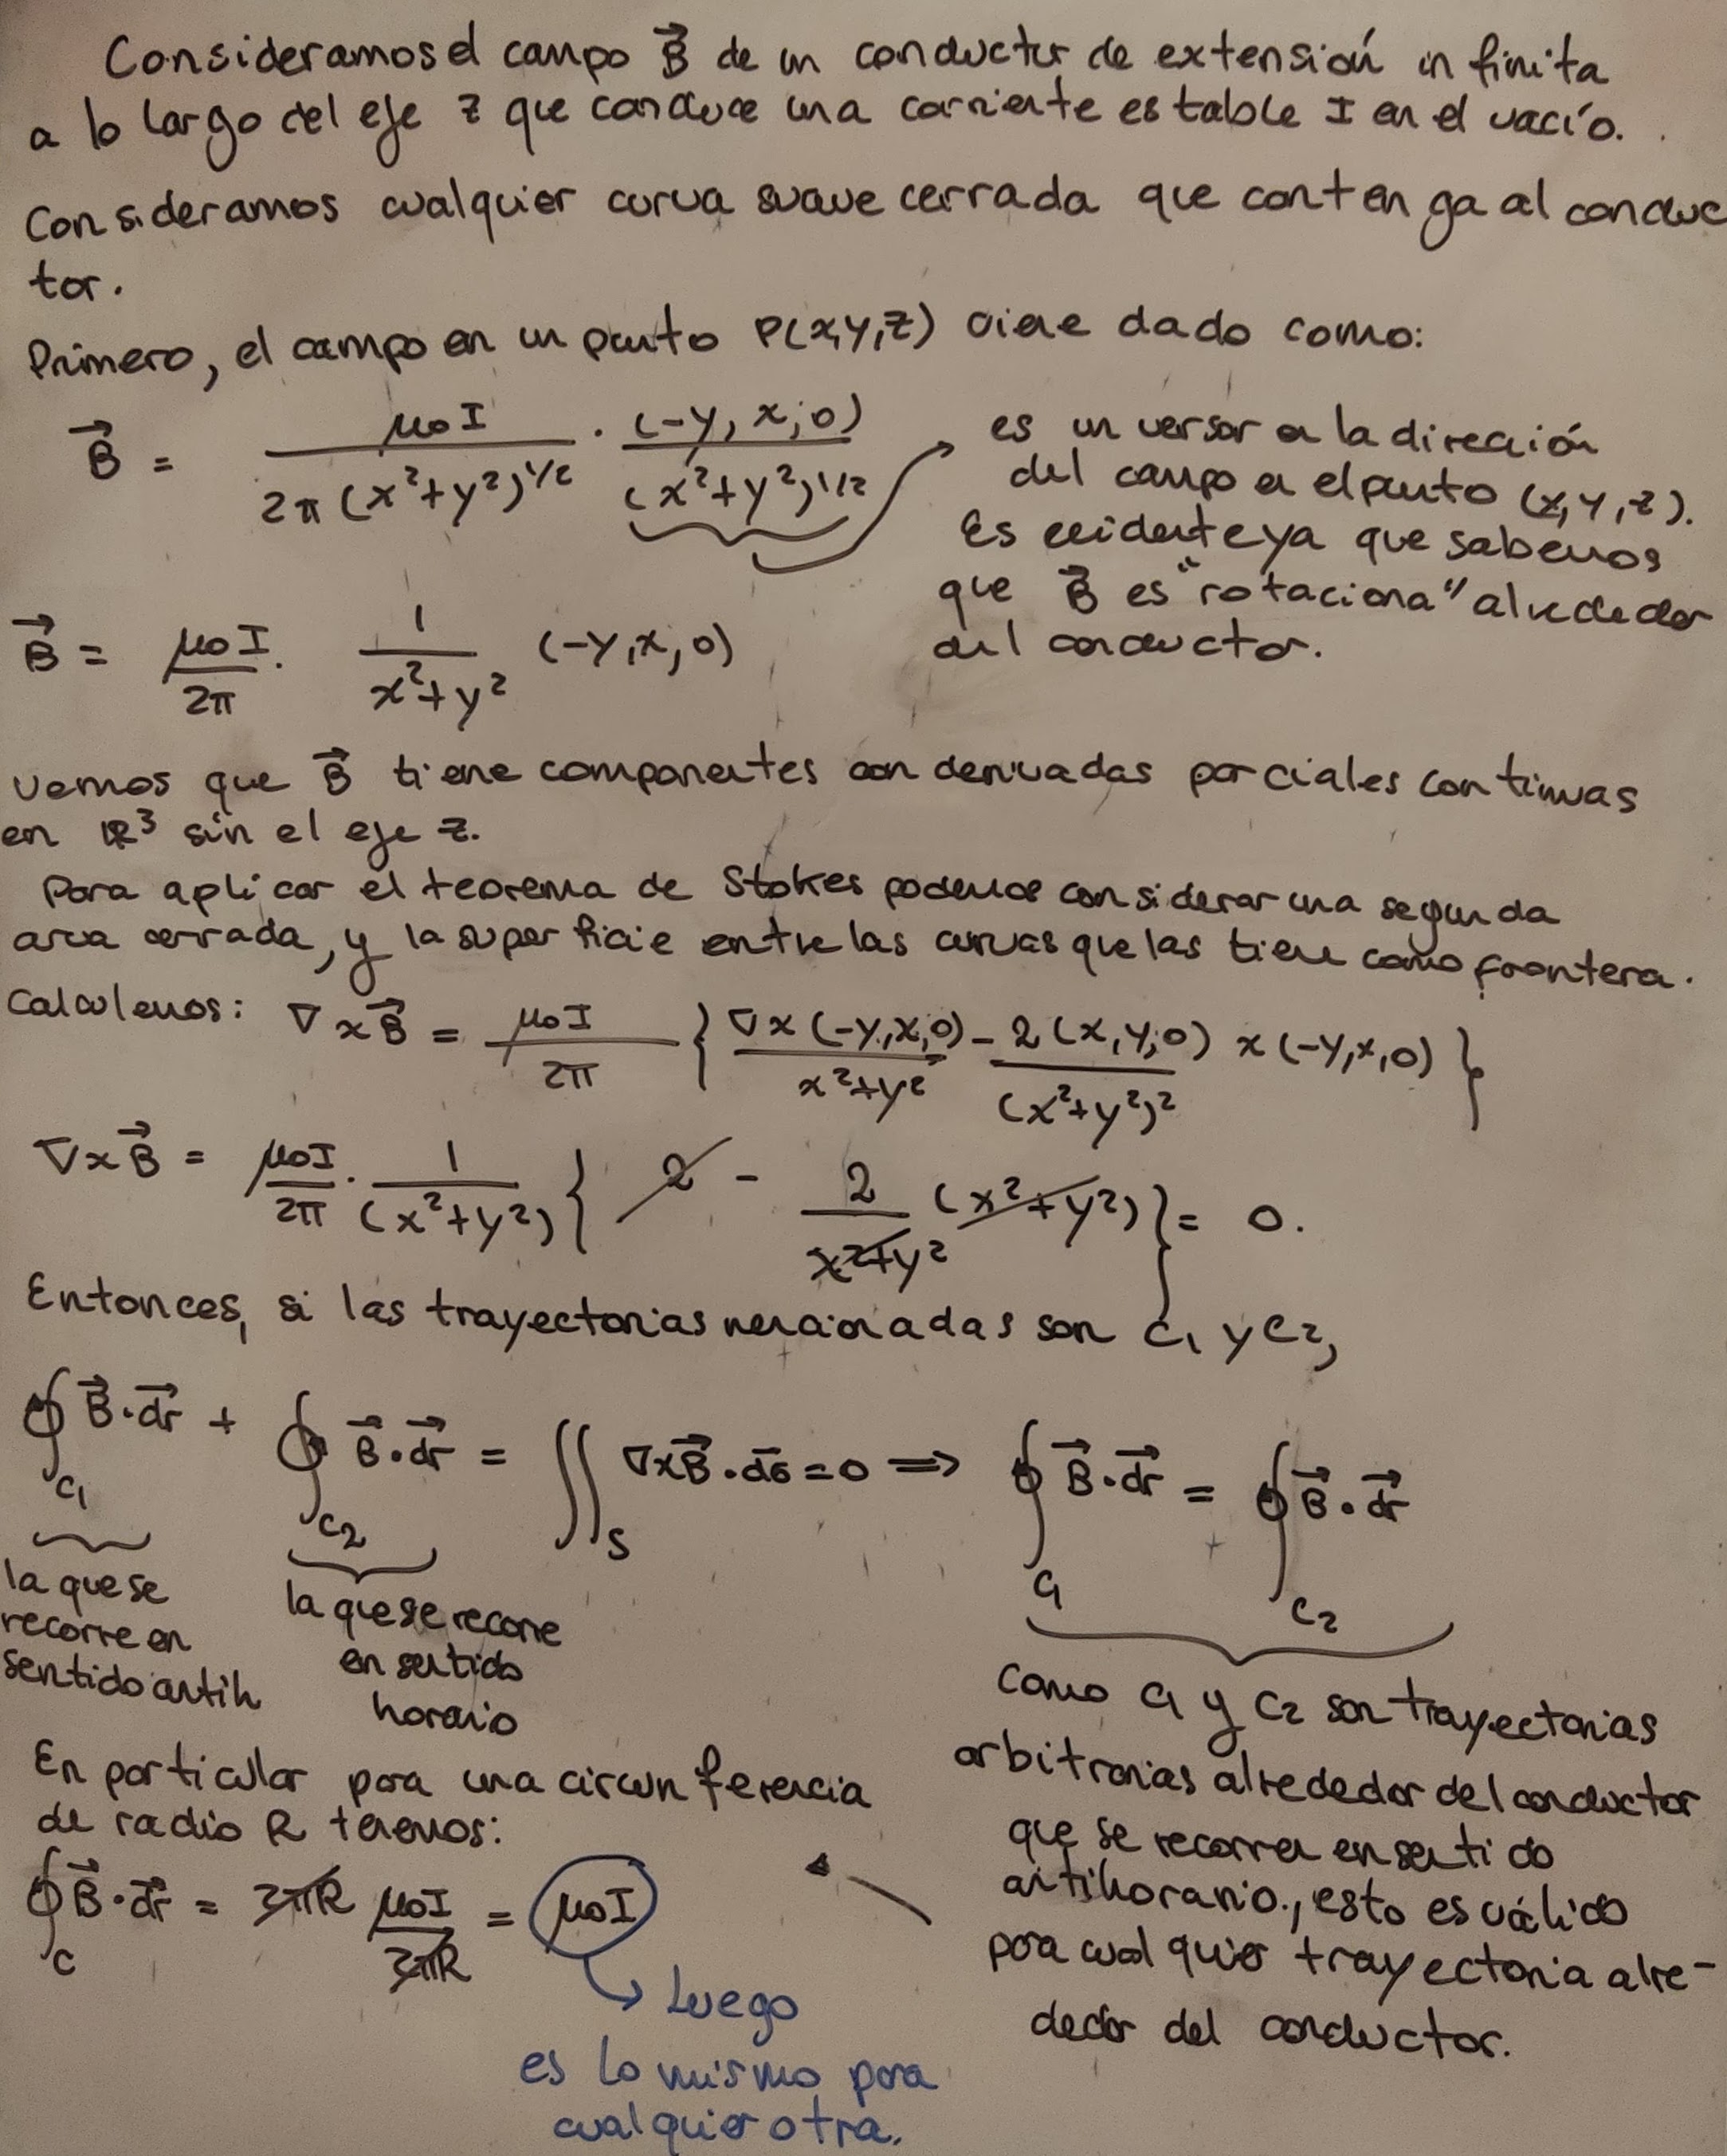 Consideramos el campo \vec{B} de un conductor de extensión infinita
a lo largo del eje z que conduce una corriente estable I en el vacío.
Consideramos cualquier curva suave cerrada que contenga al conduc
tor.
Primero, el campo en un punto P(x,y,z) viene dado como:
\vec{B} = \frac{μ₀I}{2π(x²+y²)^{1/2}} · \frac{(-y, x, 0)}{(x²+y²)^{1/2}}
es un versor en la dirección
del campo en el punto (x,y,z).
Es evidente ya que sabemos
que \vec{B} es "rotaciona" alrededor
del conductor.
\vec{B} = \frac{μ₀I}{2π} · \frac{1}{x²+y²} (-y, x, 0)
vemos que \vec{B} tiene componentes con derivadas parciales continuas
en ℝ³ sin el eje z.
Para aplicar el teorema de Stokes podemos considerar una segunda
curva cerrada, y la superficie entre las curvas que las tiene como frontera.
Calculemos: ∇×\vec{B} = \frac{μ₀I}{2π} { \frac{∇×(-y,x,0)}{x²+y²} - \frac{2(x,y,0)}{(x²+y²)²} × (-y,x,0) }
∇×\vec{B} = \frac{μ₀I}{2π} · \frac{1}{(x²+y²)} { 2 - \frac{2}{x²+y²} (x²+y²) } = 0.
Entonces, si las trayectorias mencionadas son C₁ y C₂,
∮_{C₁} \vec{B}·\vec{dr} + ∮_{C₂} \vec{B}·\vec{dr} = ∬_S ∇×\vec{B}·\vec{dσ} = 0 ⟹ ∮_{C₁} \vec{B}·\vec{dr} = ∮_{C₂} \vec{B}·\vec{dr}
la que se
recorre en
sentido antih
la que se recorre
en sentido
horario
como C₁ y C₂ son trayectorias
arbitrarias alrededor del conductor
que se recorren en sentido
antihorario, esto es válido
para cualquier trayectoria alre-
dedor del conductor.
En particular para una circunferencia
de radio R tenemos:
∮_C \vec{B}·\vec{dr} = 2πR \frac{μ₀I}{2πR} = μ₀I
Luego
es lo mismo para
cualquier otra.